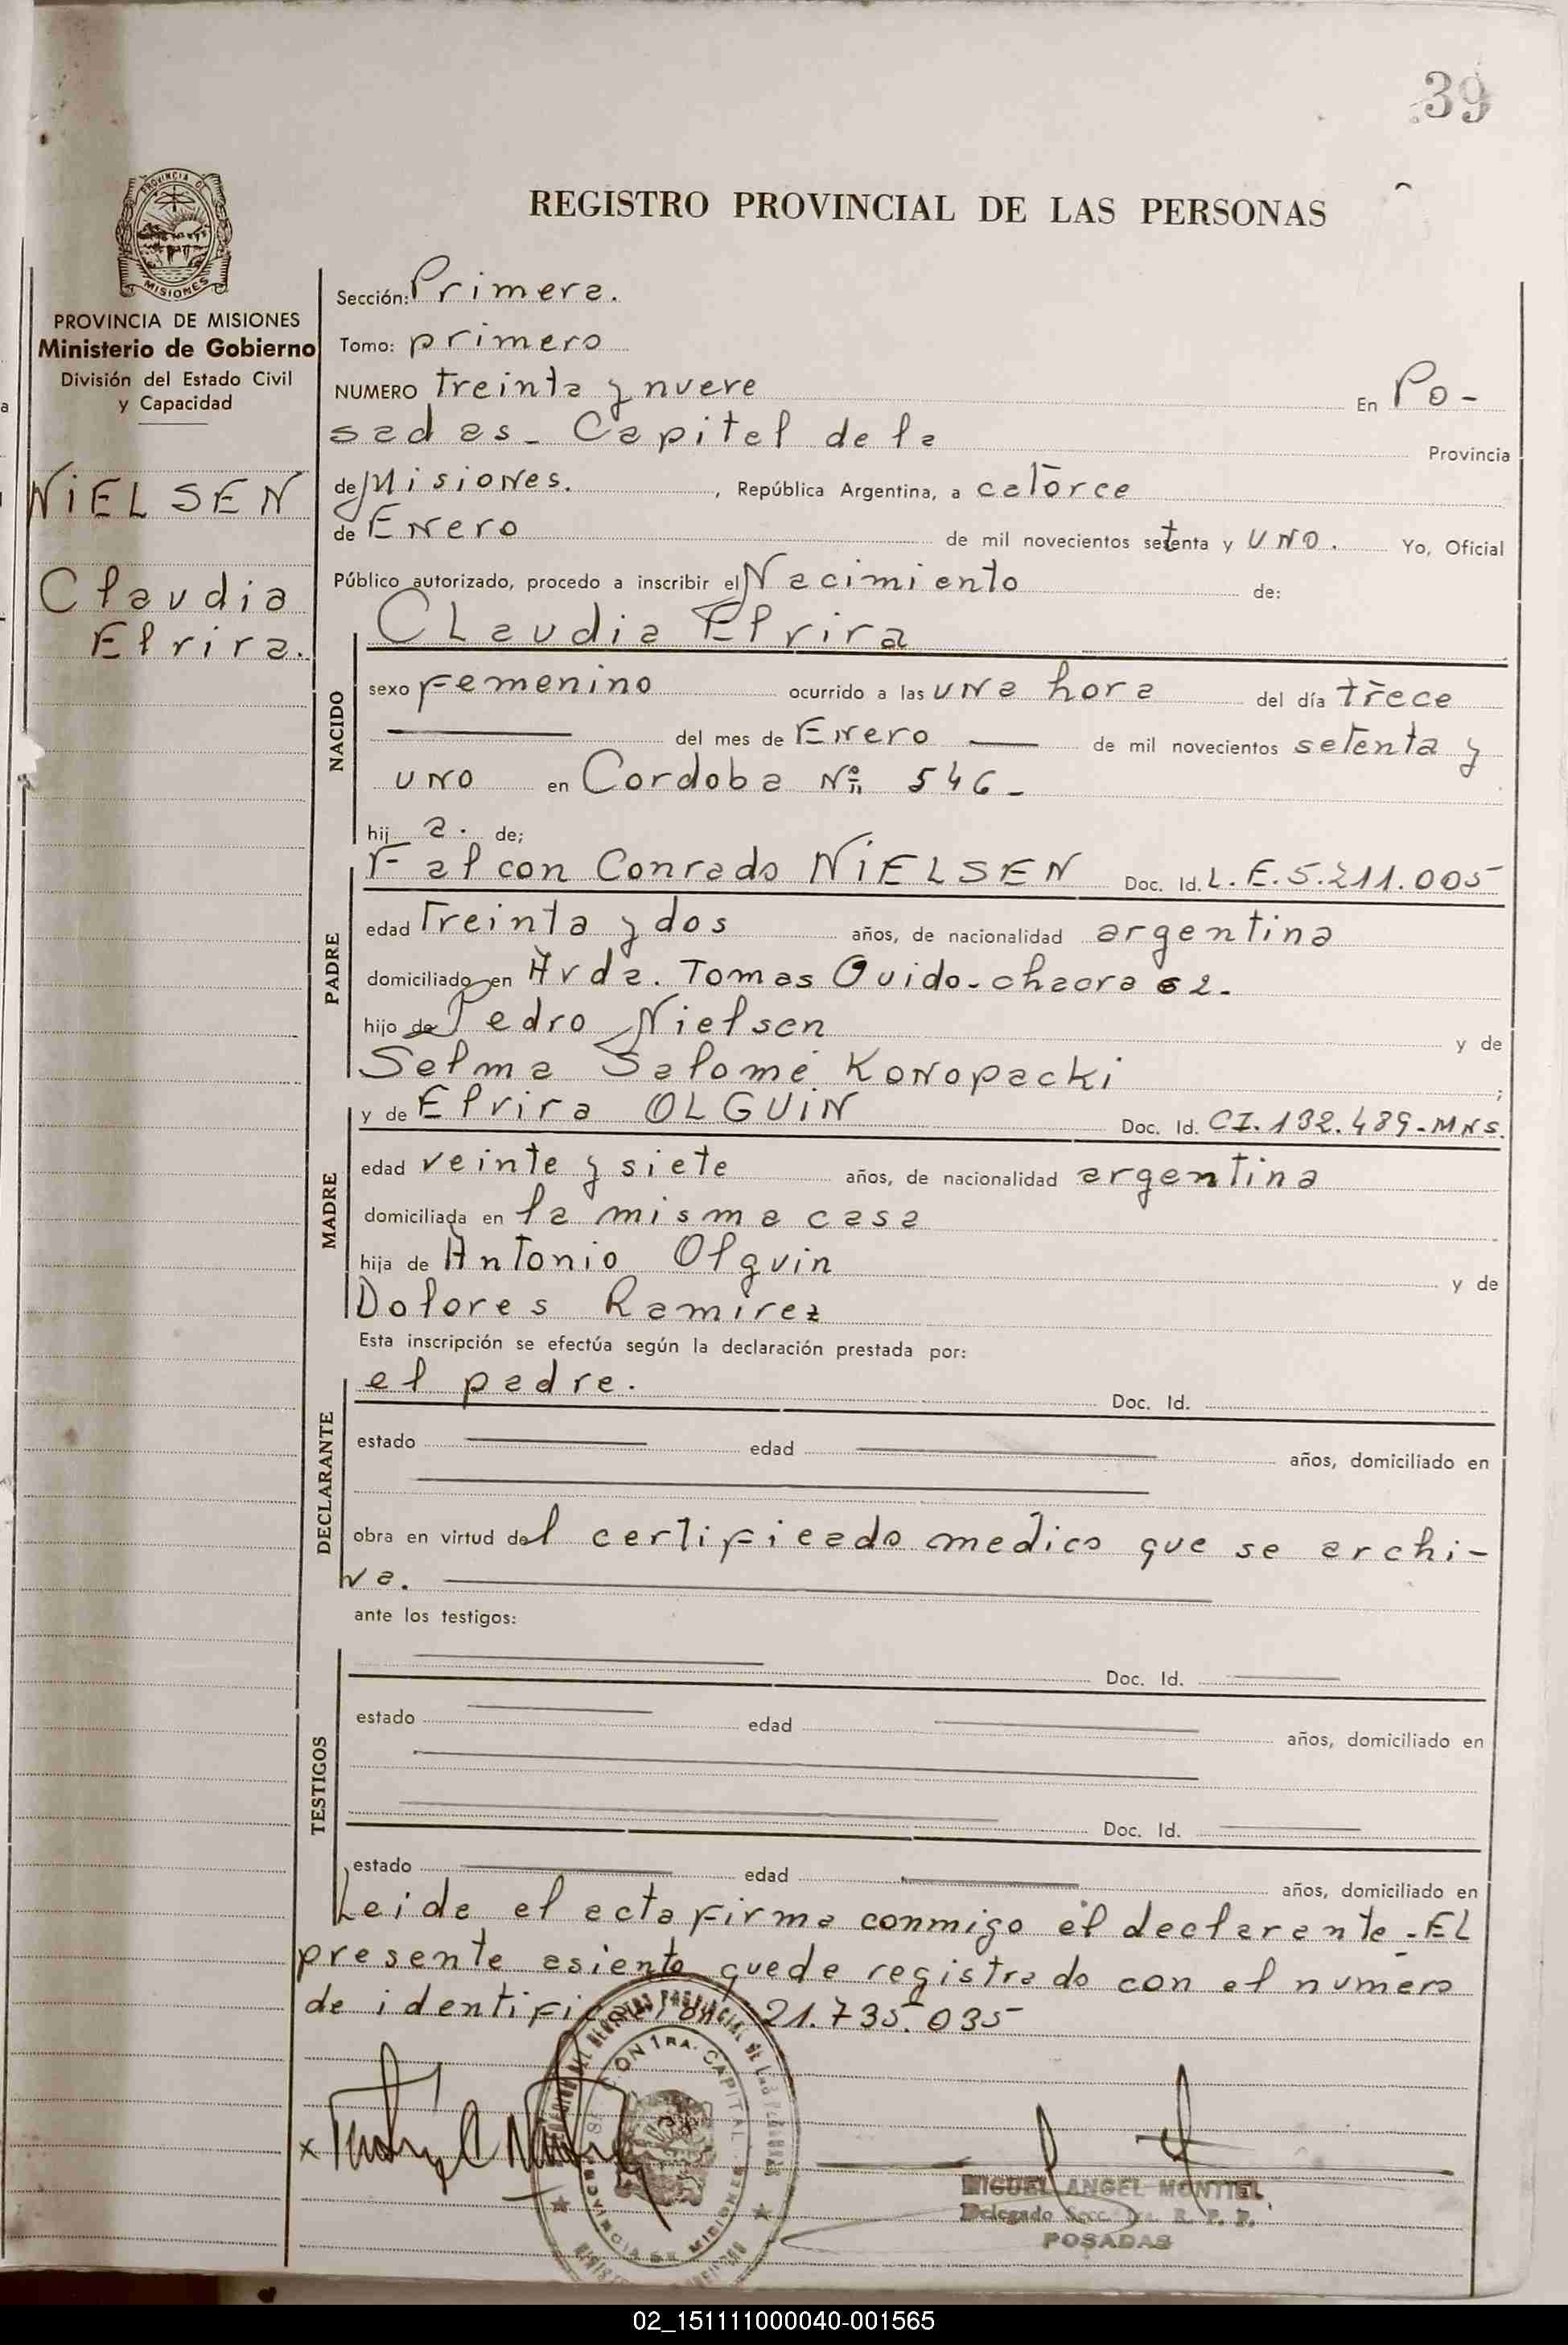 39
REGISTRO PROVINCIAL DE LAS PERSONAS
PROVINCIA DE MISIONES
PROVINCIA DE MISIONES
Ministerio de Gobierno
División del Estado Civil
y Capacidad
NIELSEN
Claudia
Elvira.
Sección: Primera.
Tomo: primero
NUMERO treinta y nueve En Po-
sadas - Capital de la Provincia
de Misiones. , República Argentina, a catorce
de Enero de mil novecientos setenta y UNO. Yo, Oficial
Público autorizado, procedo a inscribir el Nacimiento de:
NACIDO
Claudia Elvira
sexo femenino ocurrido a las una hora del día trece
del mes de Enero de mil novecientos setenta y
uno en Cordoba Nº 546 -
hij a. de;
PADRE
Falcon Conrado NIELSEN Doc. Id. L.E. 5.211.005
edad Treinta y dos años, de nacionalidad argentina
domiciliado en Avda. Tomas Guido - chacra 62.
hijo de Pedro Nielsen y de
Selma Salomé Konopacki ;
MADRE
y de Elvira OLGUIN Doc. Id. CI. 132.489 - MNS.
edad veinte y siete años, de nacionalidad argentina
domiciliada en la misma casa
hija de Antonio Olguin y de
Dolores Ramirez
Esta inscripción se efectúa según la declaración prestada por:
DECLARANTE
el padre. Doc. Id.
estado edad años, domiciliado en
obra en virtud del certificado medico que se archi-
va.
ante los testigos:
TESTIGOS
Doc. Id.
estado edad años, domiciliado en
Doc. Id.
estado edad años, domiciliado en
Leida el acta firma conmigo el declarante - El
presente asiento queda registrado con el numero
de identificacion 21.735.035
MIGUEL ANGEL MONTIEL
Delegado Secc. 1ra. R. P. P.
POSADAS
02_151111000040-001565